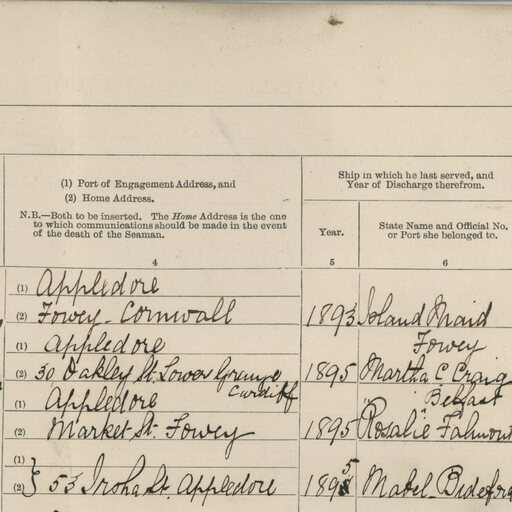 (1) Port of Engagement Address, and
(2) Home Address.
N.B.—Both to be inserted. The Home Address is the one
to which communications should be made in the event
of the death of the Seaman.
4
Ship in which he last served, and
Year of Discharge therefrom.
Year.
5
State Name and Official No.
or Port she belonged to.
6
(1) Appledore
(2) Fowey. Cornwall
1893 Island Maid
Fowey
(1) Appledore
(2) 30 Oakley St. Lower Grange
Cardiff
1895 Martha C Craig
Belfast
(1) Appledore
(2) Market St. Fowey
1895 Rosalie Falmout
(1)
(2) } 53 Irsha St. Appledore
1895 Mabel. Bidefor